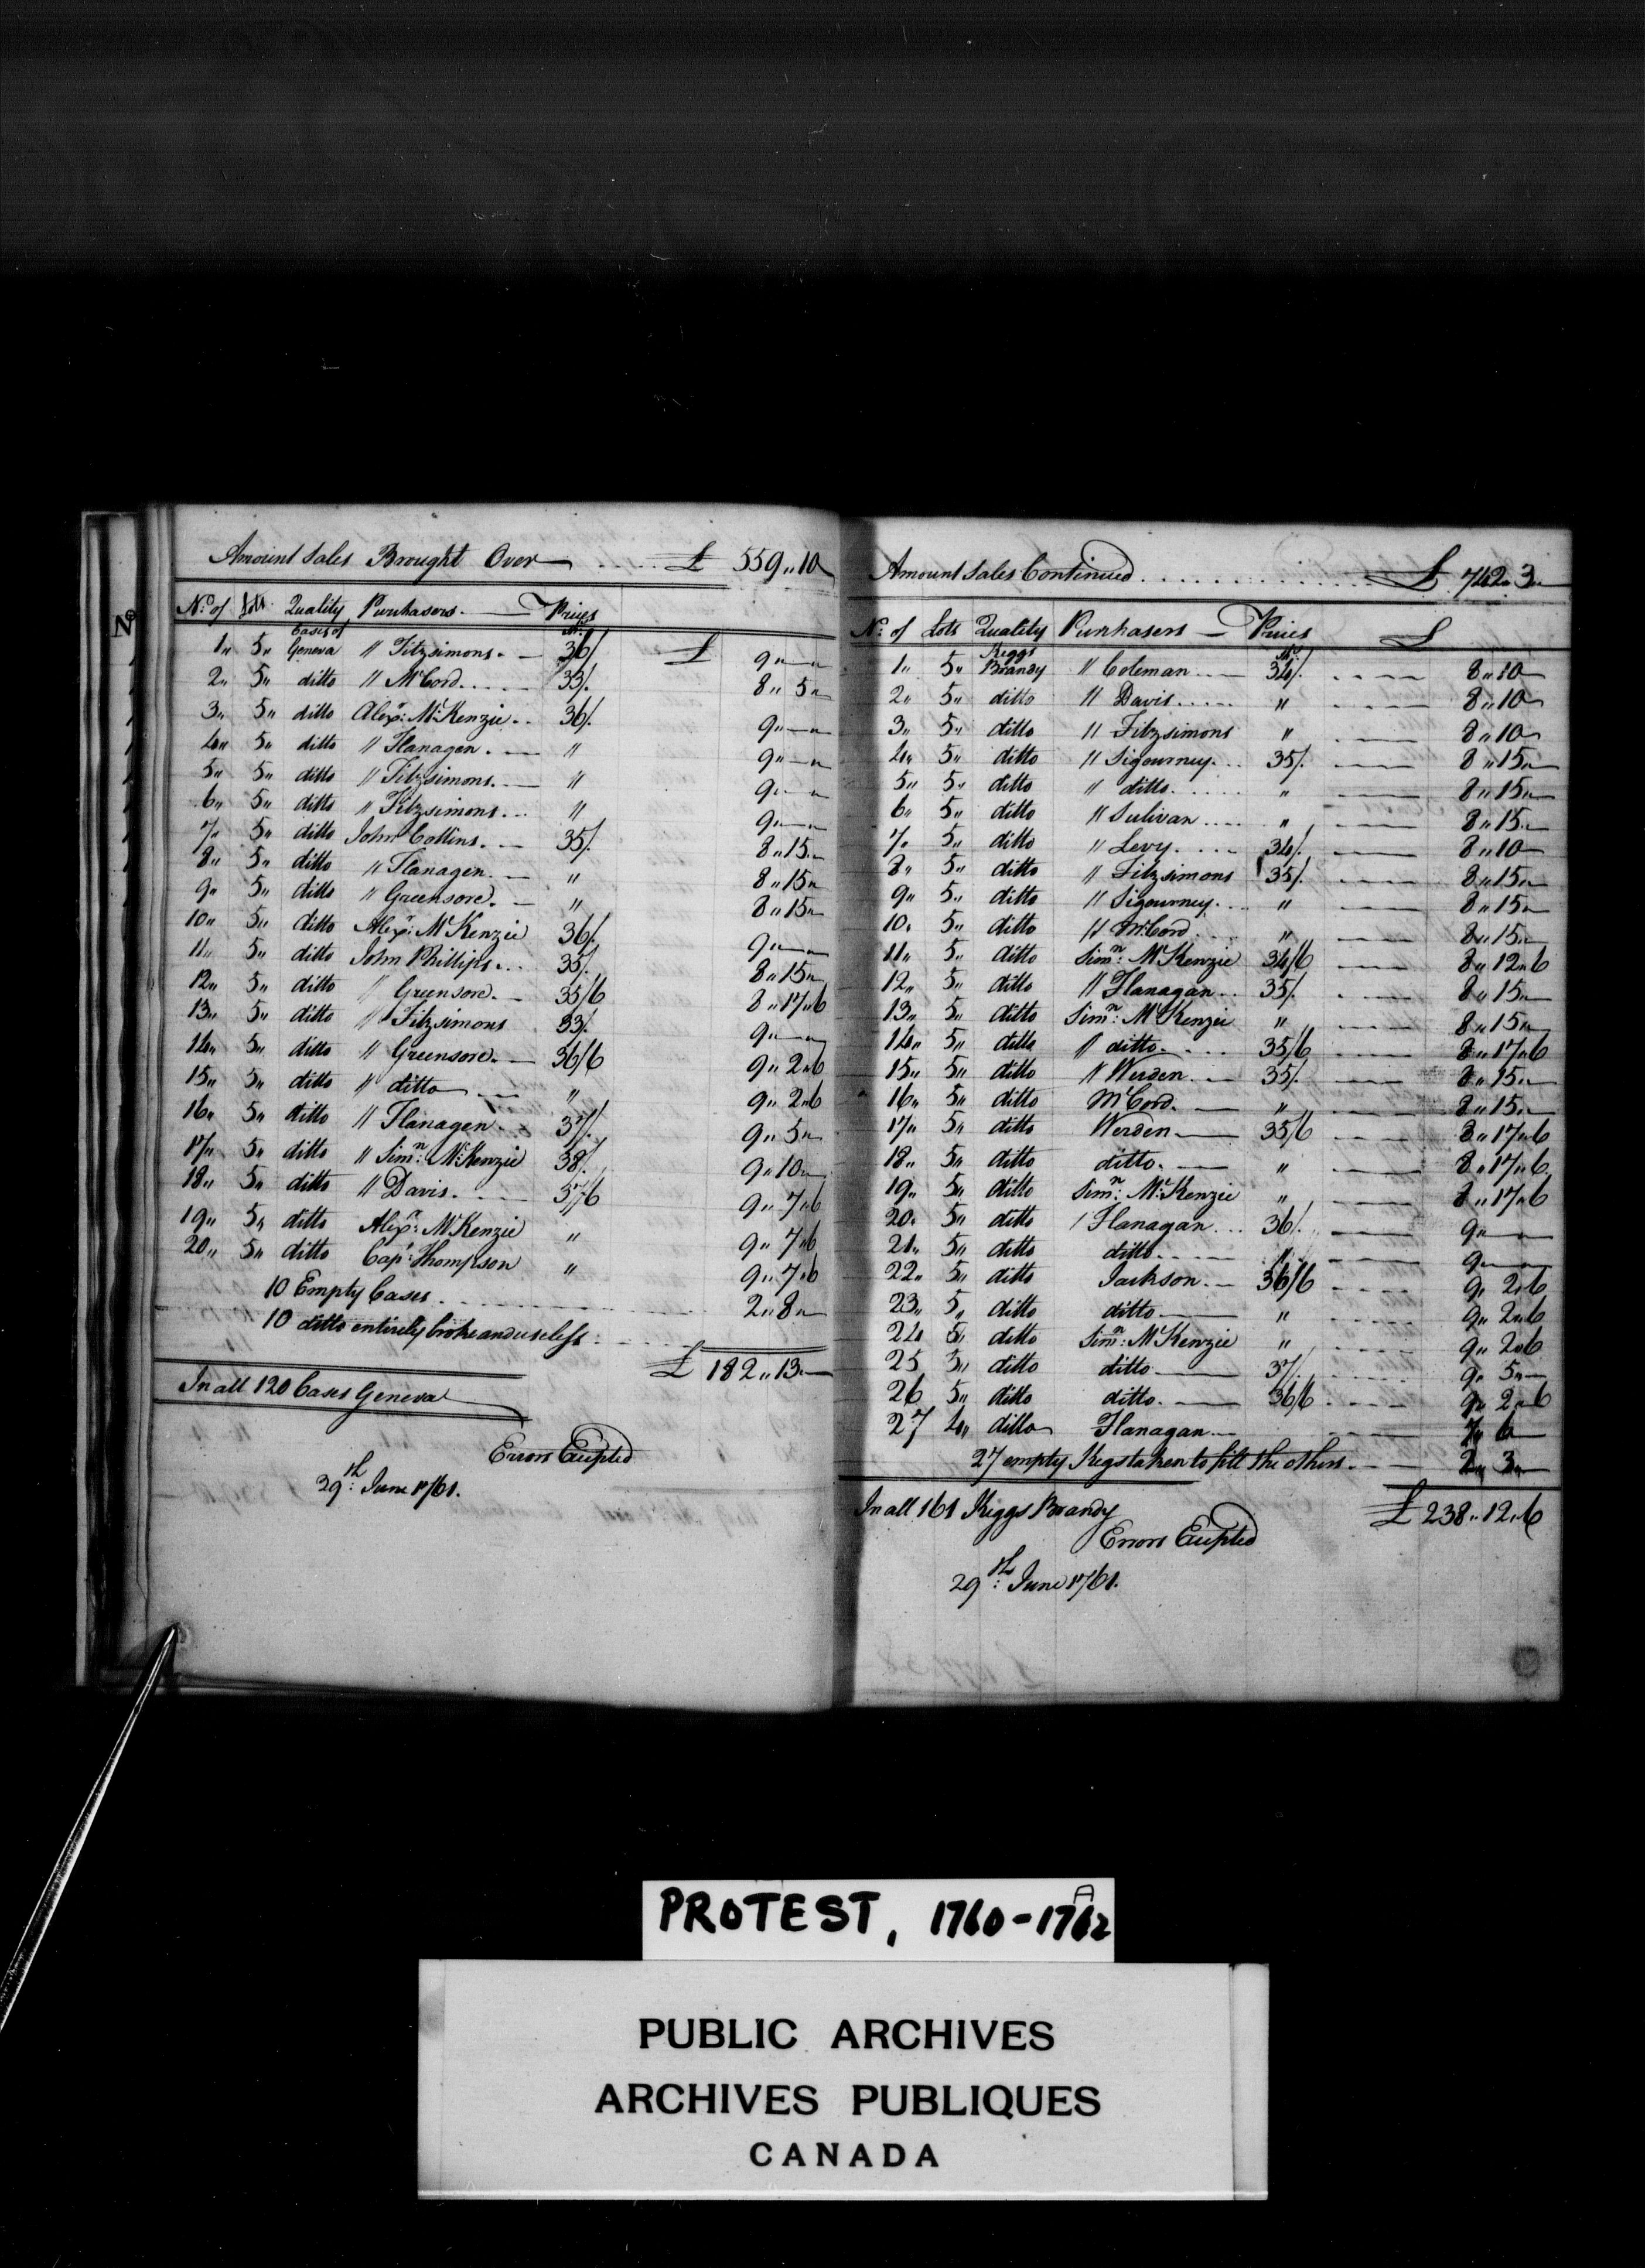 Amount Sales Brought Over ..... £ 559 " 10
No. of Lots Quality Purchasers. Prices
1 " 5 " Cases of Geneva " Fitzsimons. 36/ £ 9 " — "
2 " 5 " ditto " McCord 33/. 8 " 5 "
3 " 5 " ditto Alexr: McKenzie 36/. 9 " — "
4 " 5 " ditto " Flanagen. " 9 " — "
5 " 5 " ditto " Fitzsimons. " 9 " — "
6 " 5 " ditto " Fitzsimons " 9 " — "
7 " 5 " ditto John Collins. 35/. 8 " 15 "
8 " 5 " ditto " Flanagen. " 8 " 15 "
9 " 5 " ditto " Greensore. " 8 " 15 "
10 " 5 " ditto Alexr: McKenzie 36/. 9 " — "
11 " 5 " ditto John Phillips 35/. 8 " 15 "
12 " 5 " ditto " Greensore. 35/6 8 " 17 " 6
13 " 5 " ditto " Fitzsimons 33/. 9 " — "
14 " 5 " ditto " Greensore. 36/6 9 " 2 " 6
15 " 5 " ditto " ditto " 9 " 2 " 6
16 " 5 " ditto " Flanagen. 37/. 9 " 5 "
17 " 5 " ditto " Simn: McKenzie 38/. 9 " 10 "
18 " 5 " ditto " Davis. 37/6 9 " 7 " 6
19 " 5 " ditto Alexr: McKenzie " 9 " 7 " 6
20 " 5 " ditto Capt: Thompson " 9 " 7 " 6
10 Empty Cases 2 " 8 "
10 ditto entirely broke and useless:
£ 182 " 13 "
In all 120 Cases Geneva
Errors Excepted
29th: June 1761.
Amount Sales Continued ..... £ 742 " 3 "
No: of Lots Quality Purchasers Prices £
1 " 5 " Keggs Brandy " Coleman 34/. 8 " 10
2 " 5 " ditto " Davis " 8 " 10
3 " 5 " ditto " Fitzsimons " 8 " 10
4 " 5 " ditto " Sigourney 35/. 8 " 15 "
5 " 5 " ditto " ditto " 8 " 15 "
6 " 5 " ditto " Sulivan " 8 " 15 "
7 " 5 " ditto " Levy. 34/. 8 " 10
8 " 5 " ditto " Fitzsimons 35/. 8 " 15 "
9 " 5 " ditto " Sigourney " 8 " 15 "
10 " 5 " ditto " McCord " 8 " 15 "
11 " 5 " ditto Simn: McKenzie 34/6 8 " 12 " 6
12 " 5 " ditto " Flanagan 35/. 8 " 15 "
13 " 5 " ditto Simn: McKenzie " 8 " 15 "
14 " 5 " ditto " ditto 35/6 8 " 17 " 6
15 " 5 " ditto " Werden 35/. 8 " 15 "
16 " 5 " ditto McCord. " 8 " 15 "
17 " 5 " ditto Werden 35/6 8 " 17 " 6
18 " 5 " ditto ditto. " 8 " 17 " 6
19 " 5 " ditto Simn: McKenzie " 8 " 17 " 6
20 " 5 " ditto " Flanagan 36/. 9 " — "
21 " 5 " ditto ditto " 9 " — "
22 " 5 " ditto Jackson. 36/6 9 " 2 " 6
23 " 5 " ditto ditto " 9 " 2 " 6
24 5 " ditto Simn: McKenzie " 9 " 2 " 6
25 5 " ditto ditto 37/. 9 " 5 "
26 5 " ditto ditto. 36/6 9 " 2 " 6
27 4 " ditto Flanagan 7 " 6
27 empty Kegs taken to fill the others. 2 " 3 "
£ 238 " 12 " 6
In all 161 Keggs Brandy
Errors Excepted
29th: June 1761.
PROTEST, 1760-1762
PUBLIC ARCHIVES
ARCHIVES PUBLIQUES
CANADA